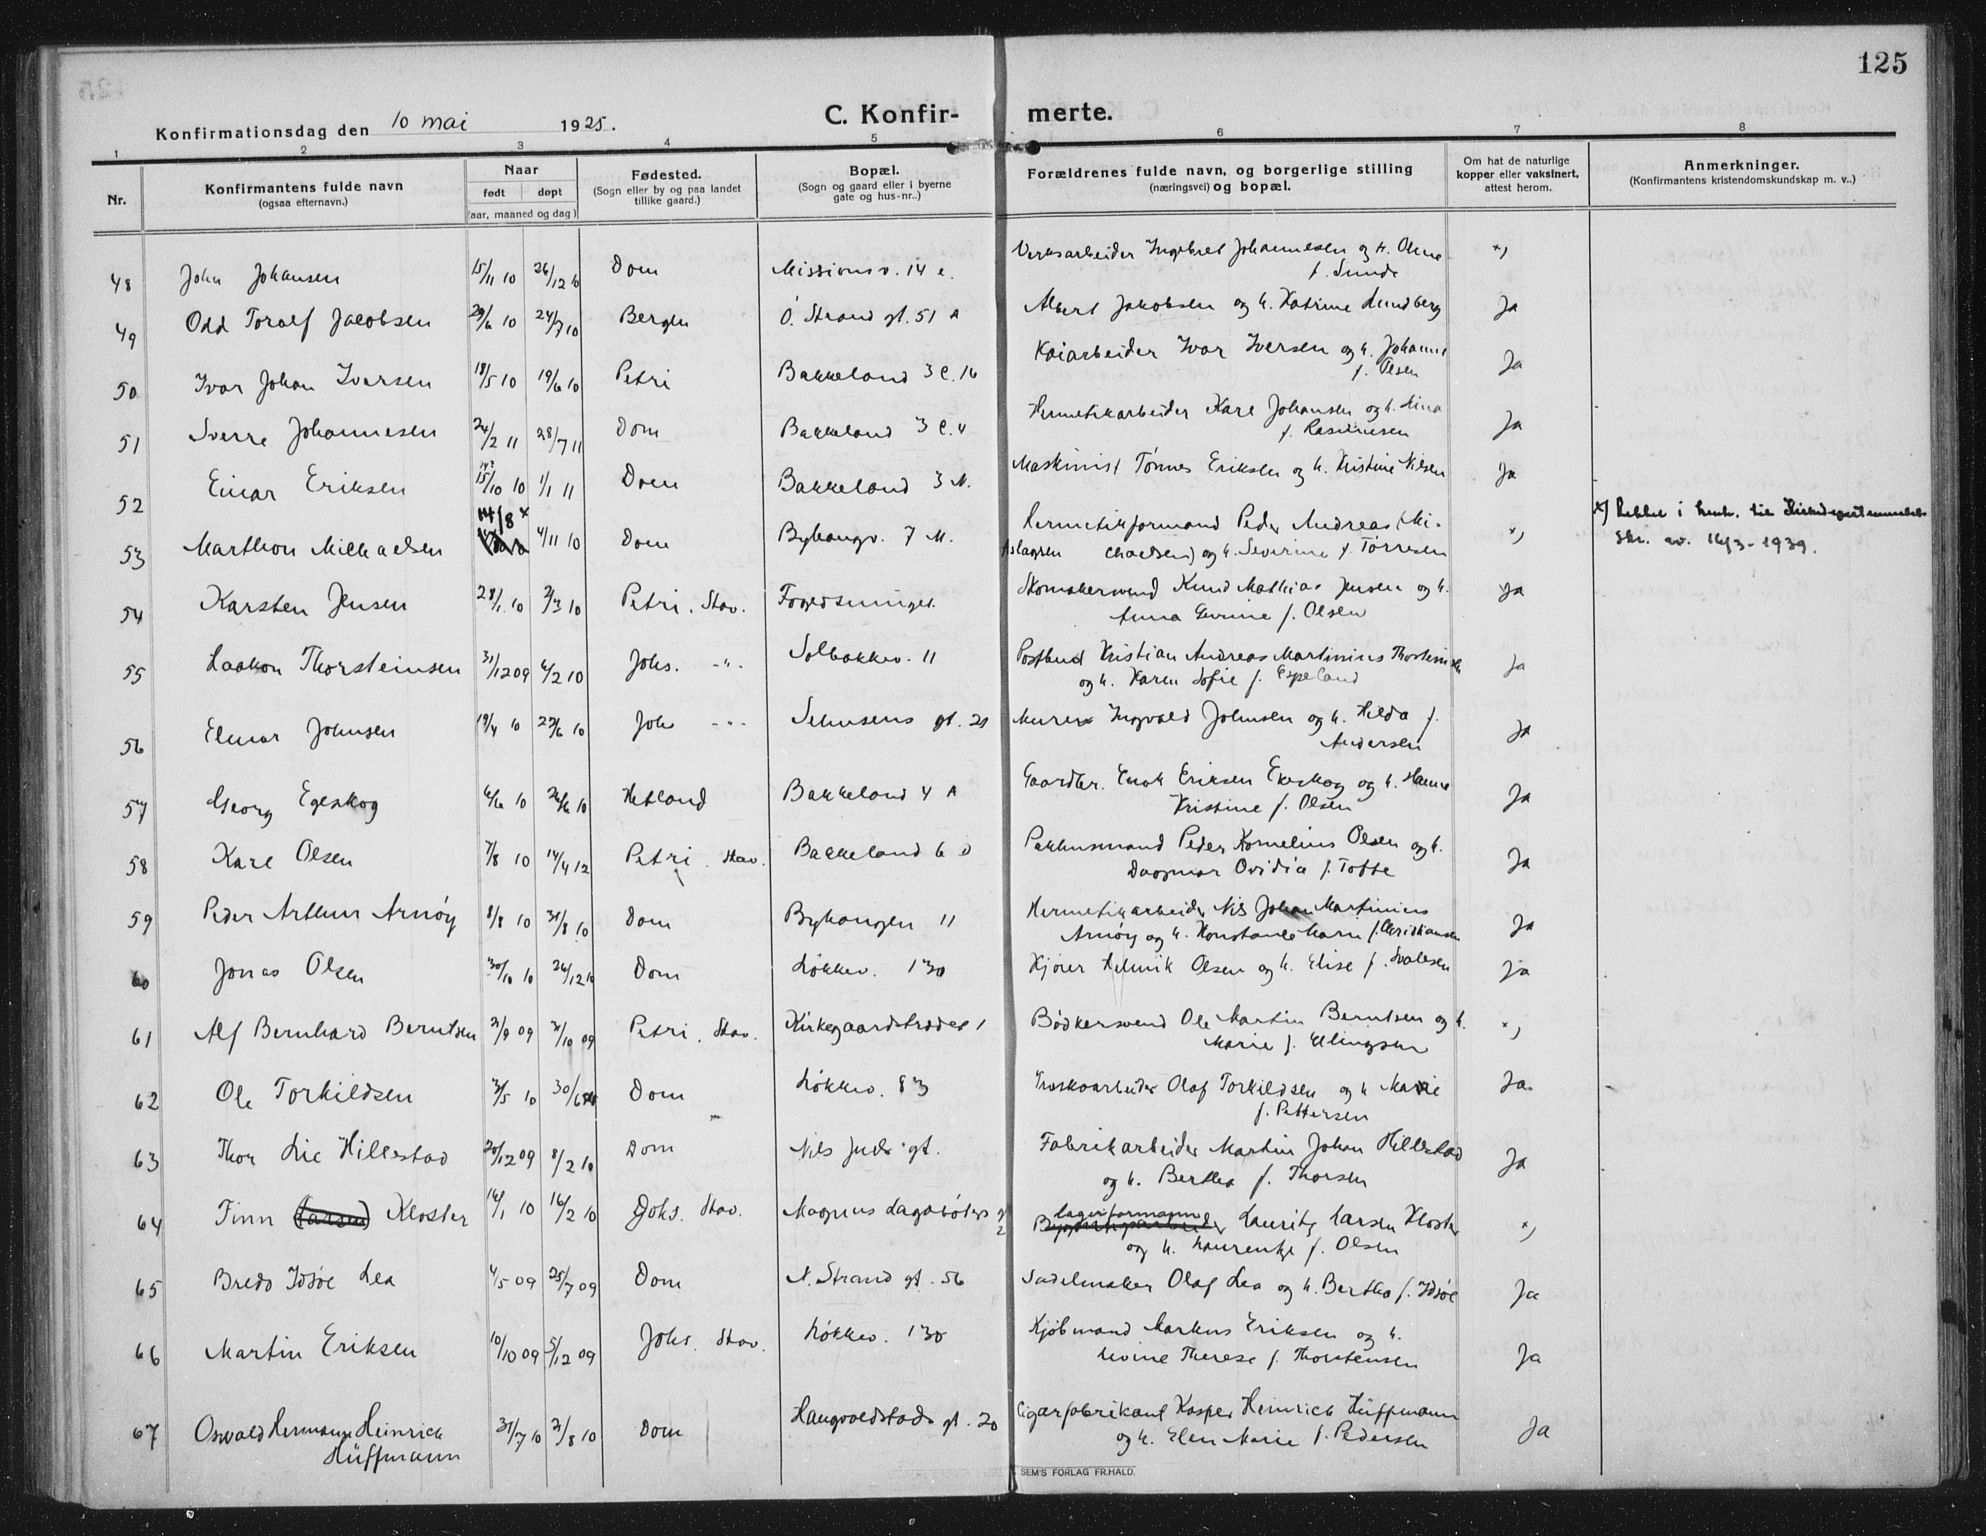 125
Konfirmationsdag den 10 mai 1925.
C. Konfir- merte.
1 2 3 4 5 6 7 8
Nr.
Konfirmantens fulde navn
(ogsaa efternavn.)
Naar
født døpt
(aar, maaned og dag)
Fødested.
(Sogn eller by og paa landet
tillike gaard.)
Bopæl.
(Sogn og gaard eller i byerne
gate og hus-nr.)
Forældrenes fulde navn, og borgerlige stilling
(næringsvei) og bopæl.
Om hat de naturlige
kopper eller vaksinert,
attest herom.
Anmerkninger.
(Konfirmantens kristendomskundskap m. v..)
48 John Johansen 15/11 10 26/12 10 Dom Missionsv. 14 e. Verksarbeider Ingebret Johannesen og h. Oline
f. Sunde
49 Odd Toralf Jacobsen 29/6 10 24/7 10 Bergen Ö. Strand gt. 51 A Albert Jakobsen og h. Katrine Lundberg Ja
50 Ivar Johan Iversen 18/5 10 19/6 10 Petri Bakkeland 3 C. 16 Kaiarbeider Ivar Iversen og h. Johanne
f. Olsen Ja
51 Sverre Johannesen 24/2 11 28/7 11 Dom Bakkeland 3 C. 4 Hermetikarbeider Karl Johansen og h. Lina
f. Rasmusen Ja
52 Einar Eriksen 15/10 10 1/1 11 Dom Bakkeland 3 M. Maskinist Tønnes Eriksen og h. Kristine Nilsen Ja
53 Marthon Mikkaelsen 14/8 x 4/11 10 Dom Byhaugv. 7 M. Hermetikformand Peder Andreas (Mi-
Aslagsen chaelsen) og h. Severine f. Tørresen x) x) Rettet i henh. til
skr. av 16/3-1939.
54 Karsten Jensen 28/1 10 2/3 10 Petri, Stav. Skomakersvend Knud Mathias Jensen og h.
Anna Gurine f. Olsen Ja
55 Haakon Thorsteinsen 31/12 09 6/2 10 Johs. -"- Solbakkev. 11 Postbud Kristian Andreas Martinius Thorsteinsen
og h. Karen Sofie f. Espeland Ja
56 Elmar Johnsen 19/4 10 22/6 10 Joh -"- gt. 21 Murer Ingvald Johnsen og h. Hilda f.
Andersen Ja
57 Georg Egeskog 6/6 10 26/6 10 Hetland Bakkeland 4 A Gaardbr. Enok Eriksen Egeskog og h. Hanna
Kristine f. Olsen Ja
58 Karl Olsen 7/8 10 14/4 12 Petri, Stav. Bakkeland 6 D Pakhusmand Peder Kornelius Olsen og h.
Dagmar Ovidia f. Tofte Ja
59 Peder Arthur Arnøy 8/8 10 31/8 10 Dom Byhaugen 11 Hermetikarbeider Nils Johan Martinius
Arnøy og h. Konstanse Maren f. Christiansen Ja
60 Jonas Olsen 30/10 10 26/12 10 Dom Løkkev. 130 Kjører Henrik Olsen og h. Elise f. Svalesen Ja
61 Alf Bernhard Berntsen 21/9 09 31/10 09 Petri, Stav. Kirkegaardstrædet 1 Bødkersvend Ole Martin Berntsen og h.
Marie f. Ellingsen x)
62 Ole Torkildsen 3/5 10 30/6 Dom Løkkev. 83 Træskoarbeider Olaf Torkildsen og h. Marie
f. Pettersen Ja
63 Thor Lie Hillestad 20/12 09 8/2 10 Dom Nils Juels gt. Fabrikarbeider Martin Johan Hillestad
og h. Bertha f. Thorsen Ja
64 Finn (Larsen) Kloster 16/1 10 16/2 10 Johs. Stav. Magnus Lagabøters gt 2 lagerformann
Bygningsarbeider Lauritz Larsen Kloster
og h. Laurentze f. Olsen x)
65 Bredo Idsöe Lea 4/5 09 25/7 09 Dom N. Strand gt. 56 Sadelmaker Olaf Lea og h. Bertha f. Idsöe Ja
66 Martin Eriksen 10/10 09 5/12 09 Johs. Stav. Løkkev. 130 Kjøbmand Markus Eriksen og h.
Lovine Therese f. Thorstensen Ja
67 Oswald Hermann Heinrich
Hüffmann 31/7 10 21/8 10 Dom Haugvaldstads gt. 20 Cigarfabrikant Kasper Heinrich Hüffmann
og h. Elen Marie f. Pedersen Ja
SEM'S FORLAG FR.HALD.